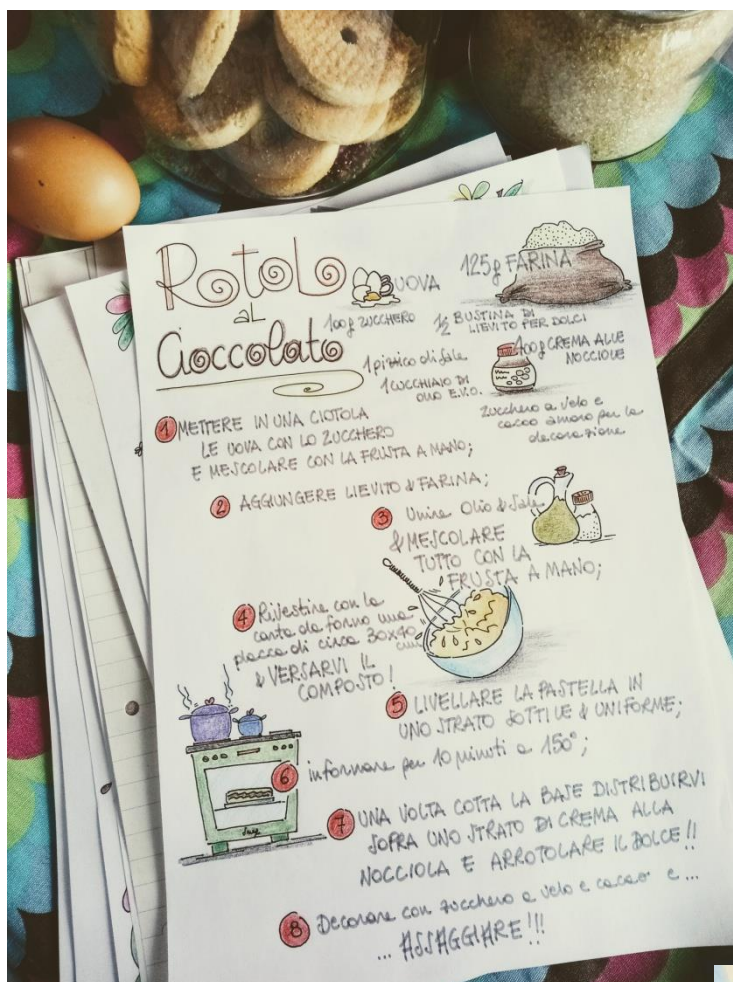 Rotolo
al
Cioccolato
3 UOVA
125g FARINA
100g ZUCCHERO
1/2 BUSTINA DI
LIEVITO PER DOLCI
1 pizzico di sale
400g CREMA ALLE
NOCCIOLE
1 CUCCHIAIO DI
OLIO E.V.O.
zucchero a velo e
cacao amaro per la
decorazione
1 METTERE IN UNA CIOTOLA
LE UOVA CON LO ZUCCHERO
E MESCOLARE CON LA FRUSTA A MANO;
2 AGGIUNGERE LIEVITO & FARINA;
3 Unire Olio & Sale
& MESCOLARE
TUTTO CON LA
FRUSTA A MANO;
4 Rivestire con la
carta da forno una
placca di circa 30x40
cm
& VERSARVI IL
COMPOSTO!
5 LIVELLARE LA PASTELLA IN
UNO STRATO SOTTILE & UNIFORME;
6 infornare per 10 minuti a 150°;
7 UNA VOLTA COTTA LA BASE DISTRIBUIRVI
SOPRA UNO STRATO DI CREMA ALLA
NOCCIOLA E ARROTOLARE IL DOLCE!!
8 Decorare con zucchero a velo e cacao e ...
... ASSAGGIARE!!!